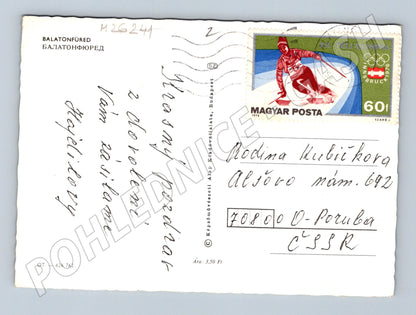 M 26241
2
BALATONFÜRED
БАЛАТОНФЮРЕД
Krasný pozdrav
z dovolené
Vám zasílame
Hajdilovy
© Képzőművészeti Alap Kiadóvállalata, Budapest
Ára: 3,50 Ft
INNSBRUCK
MAGYAR POSTA
60f
1975
Rodina Kubíčkova
Alšovo nám. 692
70800 O-Poruba
ČSSR
POHLEDNICE CASH